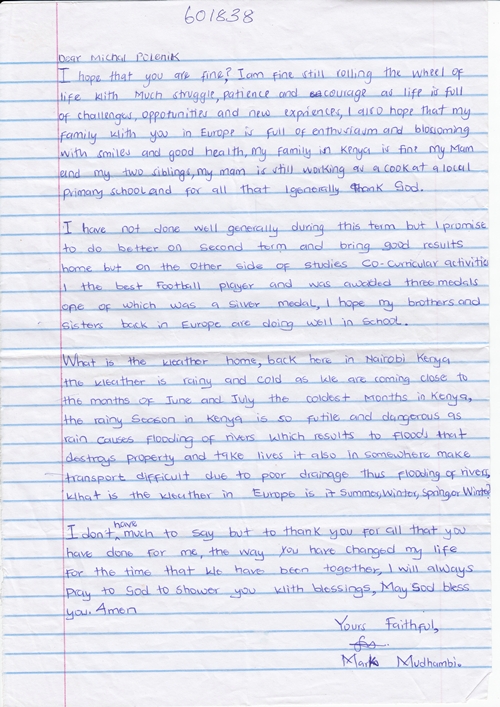 601838
Dear Michal Polenik
I hope that you are fine? Iam fine still rolling the wheel of
life with Much struggle, patience and encourage as life is full
of challenges, oppotunities and new expriences, I also hope that my
family with you in Europe is full of enthusiasm and blossoming
with smiles and good health, my family in Kenya is fine my Mam
and my two siblings, my mam is still working as a cook at a local
primary school and for all that I generally thank God.
I have not done well generally during this term but I promise
to do better on second term and bring good results
home but on the other side of studies Co-Curricular activitie
I the best Football player and was awarded three medals
one of which was a silver medal, I hope my brothers and
sisters back in Europe are doing well in School.
What is the weather home, back here in Nairobi Kenya
the weather is rainy and cold as we are coming close to
the months of June and July the coldest Months in Kenya,
the rainy Season in Kenya is so futile and dangerous as
rain causes flooding of rivers which results to floods that
destroys property and take lives it also in somewhere make
transport difficult due to poor drainage thus flooding of rivers,
What is the weather in Europe is it Summer, Winter, Spring or Winter?
I dont have much to say but to thank you for all that you
have done for me, the way you have changed my life
for the time that we have been together, I will always
pray to God to shower you with blessings, May God bless
you. Amen
Yours Faithful,
Mark Mudhambi.